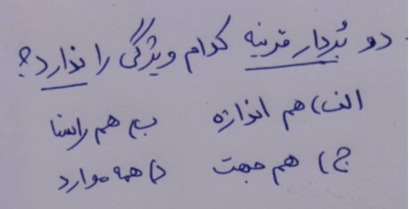 دو بُردار قرینه کدام ویژگی را ندارد؟
الف) هم اندازه ب) هم راستا
ج) هم جهت د) همه موارد